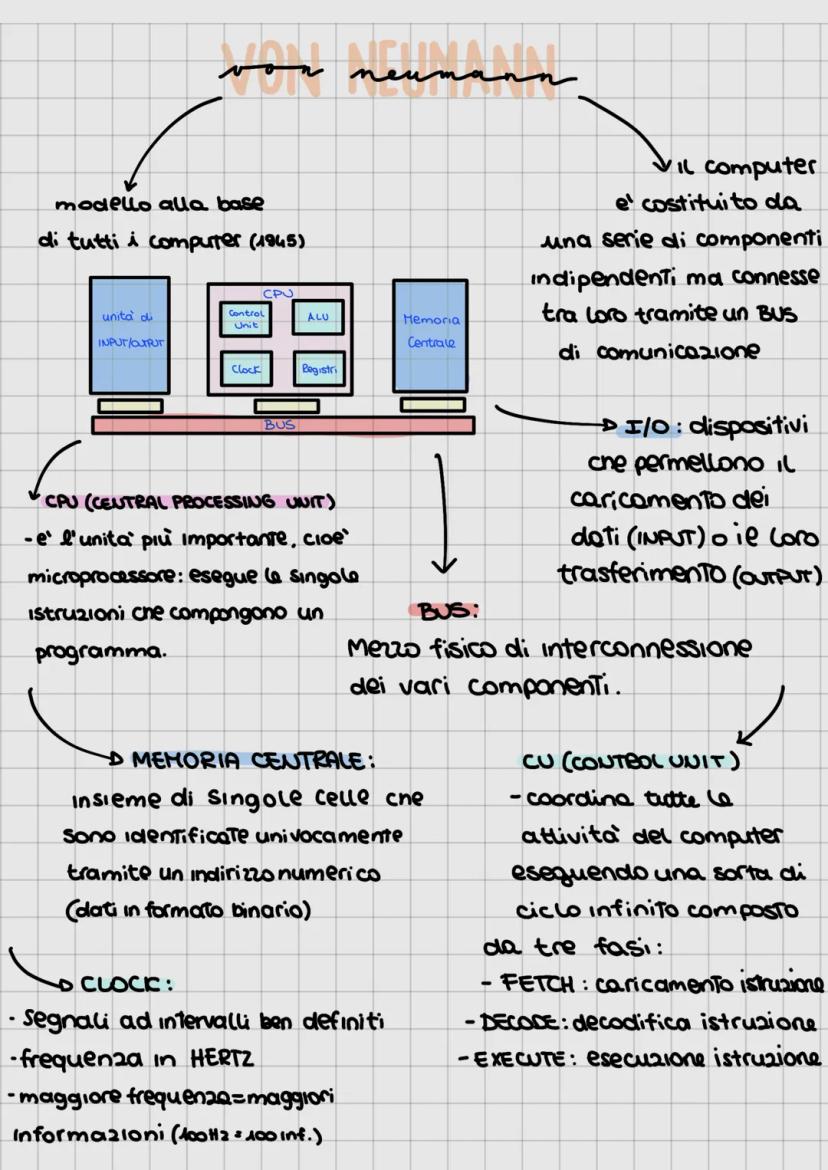 VON NEUMANN
von neumann
modello alla base
di tutti i computer (1945)
il computer
e' costituito da
una serie di componenti
indipendenti ma connesse
tra loro tramite un BUS
di comunicazione
unità di
INPUT/OUTPUT
CPU
Control
Unit
ALU
Clock
Registri
Memoria
Centrale
BUS
I/O: dispositivi
che permettono il
caricamento dei
dati (INPUT) o il loro
trasferimento (OUTPUT)
CPU (CENTRAL PROCESSING UNIT)
- e' l'unità più importante, cioè
microprocessore: esegue le singole
istruzioni che compongono un
programma.
BUS:
Mezzo fisico di interconnessione
dei vari componenti.
MEMORIA CENTRALE:
insieme di singole celle che
sono identificate univocamente
tramite un indirizzo numerico
(dati in formato binario)
CU (CONTROL UNIT)
- coordina tutte le
attività del computer
eseguendo una sorta di
ciclo infinito composto
da tre fasi:
- FETCH: caricamento istruzione
- DECODE: decodifica istruzione
- EXECUTE: esecuzione istruzione
CLOCK:
· segnali ad intervalli ben definiti
· frequenza in HERTZ
- maggiore frequenza = maggiori
informazioni (100Hz = 100 inf.)